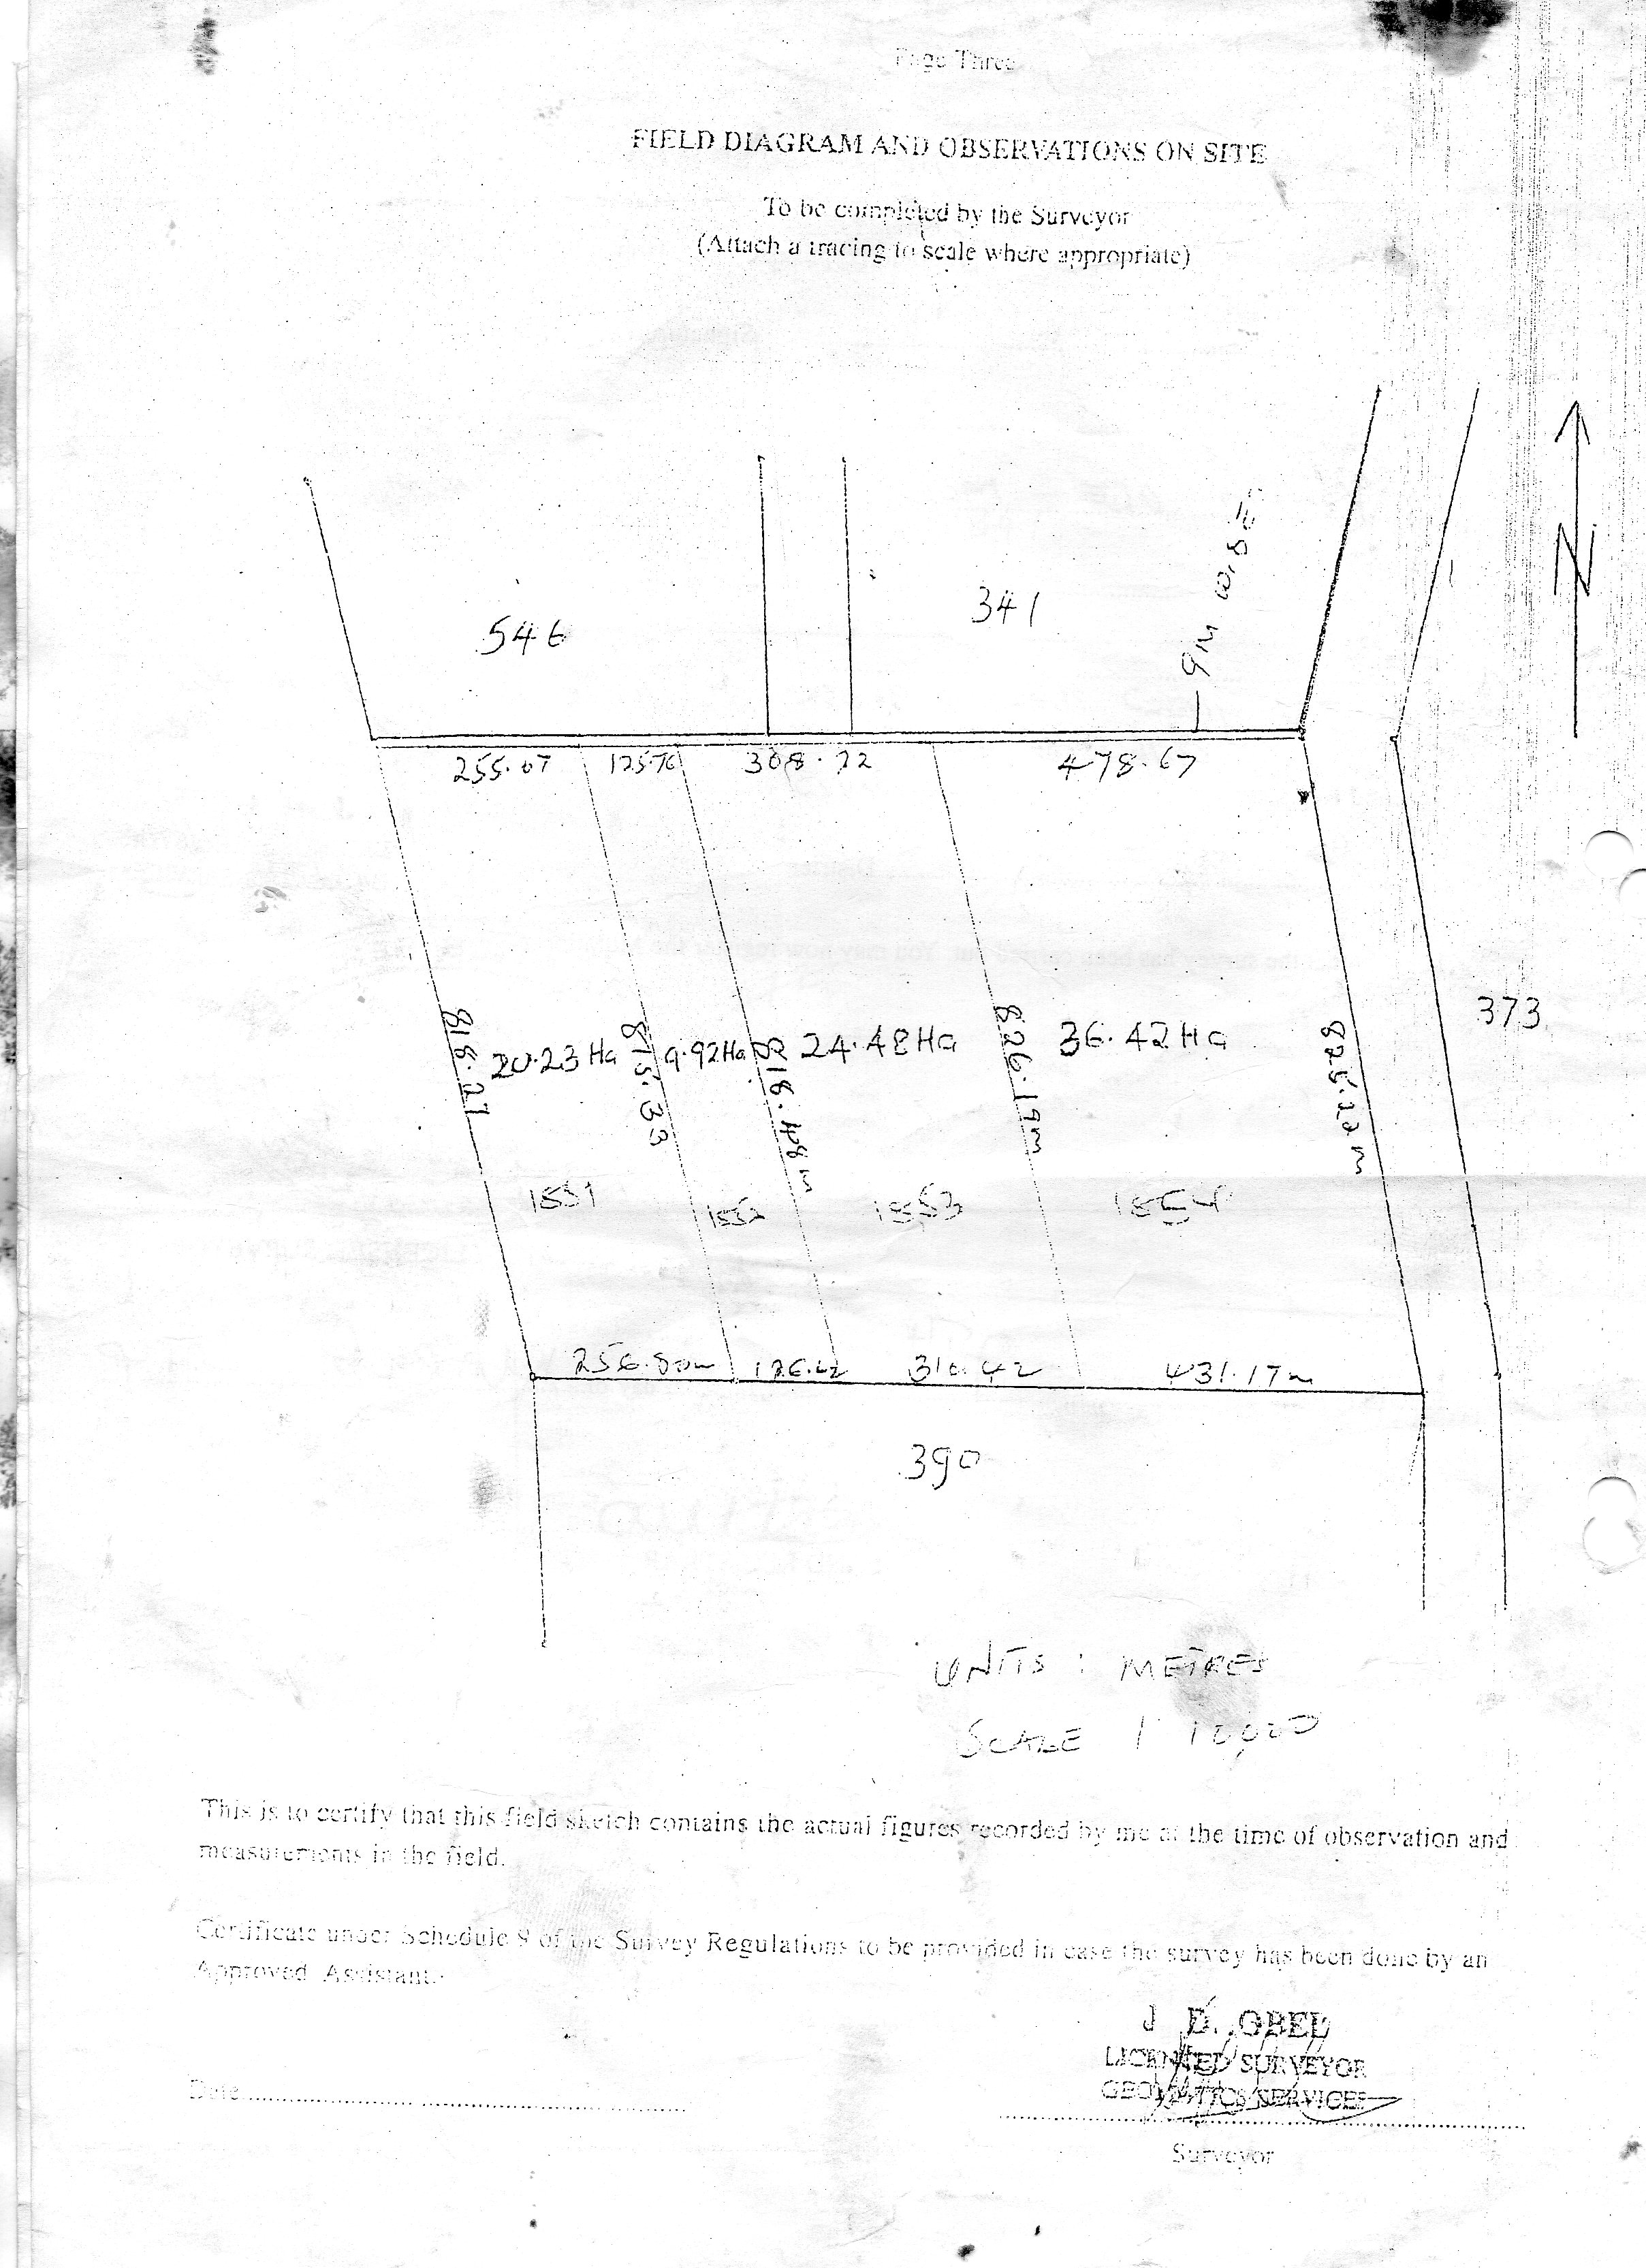 Page Three
FIELD DIAGRAM AND OBSERVATIONS ON SITE
To be completed by the Surveyor
(Attach a tracing to scale where appropriate)
N
546
341
9M
255.07
125.76
308.22
478.67
373
818.27
20.23 Ha
815.33
9.92Ha
818.48m
24.48Ha
826.19m
36.42Ha
825.22m
1851
1852
1853
1854
256.80m
126.62
310.42
431.17m
390
UNITS : METRES
SCALE 1 10,000
This is to certify that this field sketch contains the actual figures recorded by me at the time of observation and
measurements in the field.
Certificate under Schedule 9 of the Survey Regulations to be provided in case the survey has been done by an
Approved Assistant.
J D. OBEL
LICENSED SURVEYOR
GEOMATICS SERVICES
Date
Surveyor